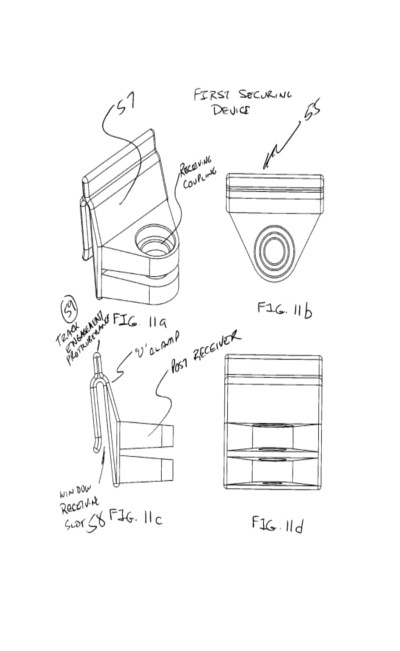 FIRST SECURING
DEVICE
57
55
RECEIVING
COUPLING
FIG. 11a
FIG. 11b
59
TRACK
ENGAGEMENT
PROTRUBERANCE
"U" CLAMP
POST RECEIVER
WINDOW
RECEIVING
SLOT 58
FIG. 11c
FIG. 11d